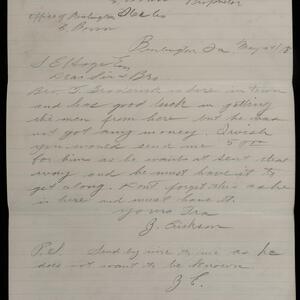 Proprietor
Office of Burlington
Burlington Ia May
Dear Sir & Bro
Bro. T. Broderick is here in town
and has good luck in getting
the men from here but he has
not got any money. I wish
you would send me 50 00
for him as he wants it sent that
way and he must have it to
get along. Don't forget this as he
is here and must have it.
Yours Fra
J. Erickson
P.S. Send by wire to me as he
does not want to be known
J E.